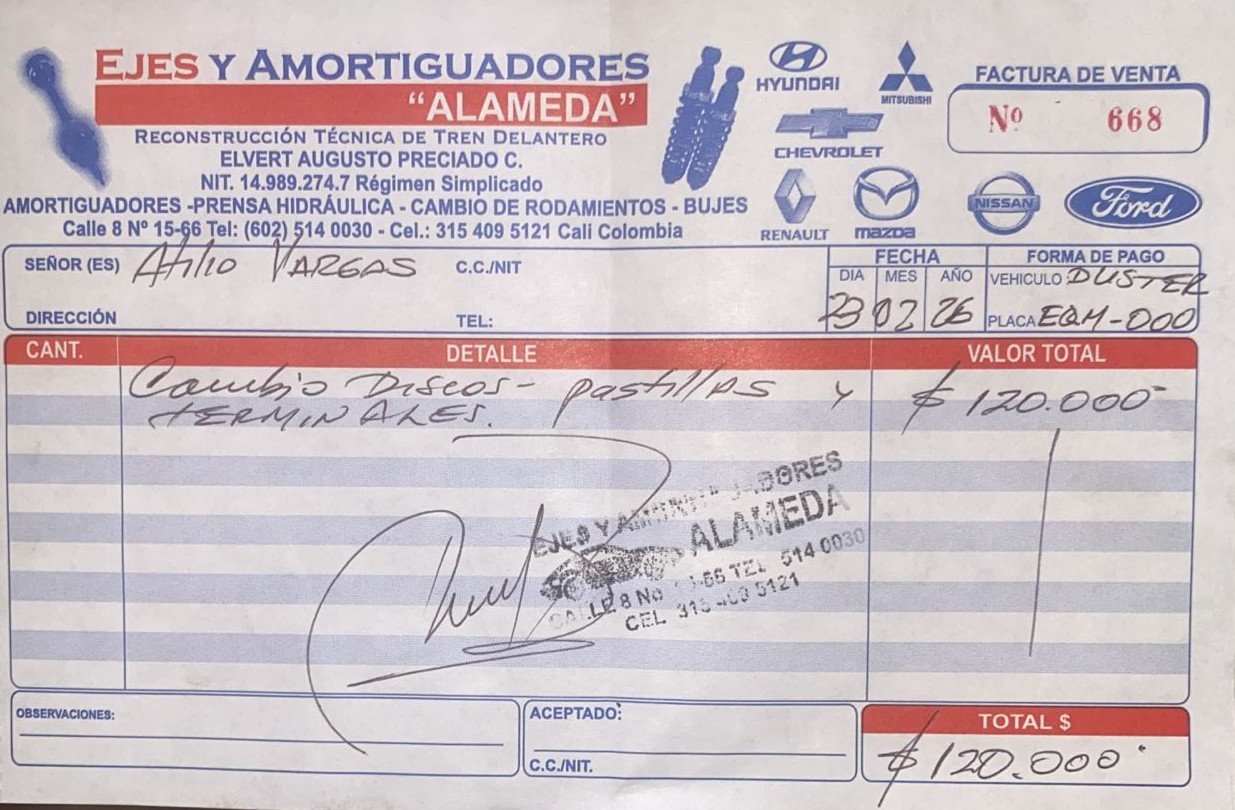 EJES Y AMORTIGUADORES
"ALAMEDA"
RECONSTRUCCIÓN TÉCNICA DE TREN DELANTERO
ELVERT AUGUSTO PRECIADO C.
NIT. 14.989.274.7 Régimen Simplicado
AMORTIGUADORES -PRENSA HIDRÁULICA - CAMBIO DE RODAMIENTOS - BUJES
Calle 8 Nº 15-66 Tel: (602) 514 0030 - Cel.: 315 409 5121 Cali Colombia
HYUNDAI
MITSUBISHI
CHEVROLET
RENAULT
mazda
NISSAN
Ford
FACTURA DE VENTA
Nº 668
SEÑOR (ES) Atilio VARGAS C.C./NIT
DIRECCIÓN TEL:
FECHA
DIA MES AÑO
23 02 26
FORMA DE PAGO
VEHICULO DUSTER
PLACA EQM-000
CANT. DETALLE VALOR TOTAL
Cambio Discos - pastillas y $ 120.000
TERMINALES.
EJES Y
ALAMEDA
CALLE 8 No -66 TEL 514 0030
CEL 315 409 5121
OBSERVACIONES:
ACEPTADO:
C.C./NIT.
TOTAL $
$ 120.000